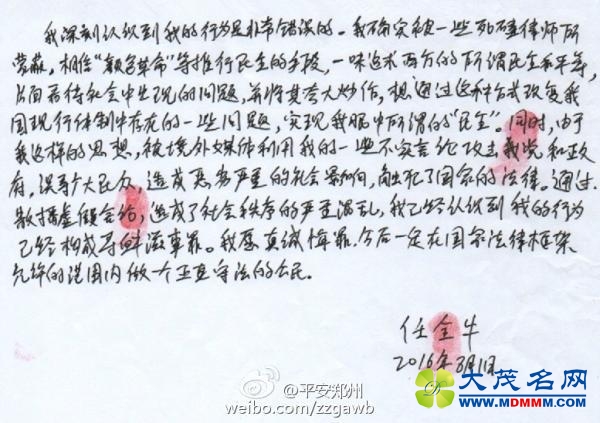 我深刻认识到我的行为是非常错误的。我确实被一些死磕律师所
蒙蔽，相信“颜色革命”等推行民主的手段，一味追求西方的所谓民主和平等，
片面看待社会中出现的问题，并将其夸大炒作，想通过这种方式改变我
国现行体制中存在的一些问题，实现我眼中所谓的“民主”。同时，由于
我这样的思想，被境外媒体利用我的一些不实言论攻击我党和政
府，误导广大民众，造成恶劣严重的社会影响，触犯了国家的法律。通过
散播虚假言论，造成了社会秩序的严重混乱，我已经认识到我的行为
已经构成寻衅滋事罪。我愿真诚悔罪，今后一定在国家法律框架
允许的范围内做个正直守法的公民。
任全牛
2016年8月1日
@平安郑州
weibo.com/zzgawb
大茂名网
WWW.MDMMM.COM